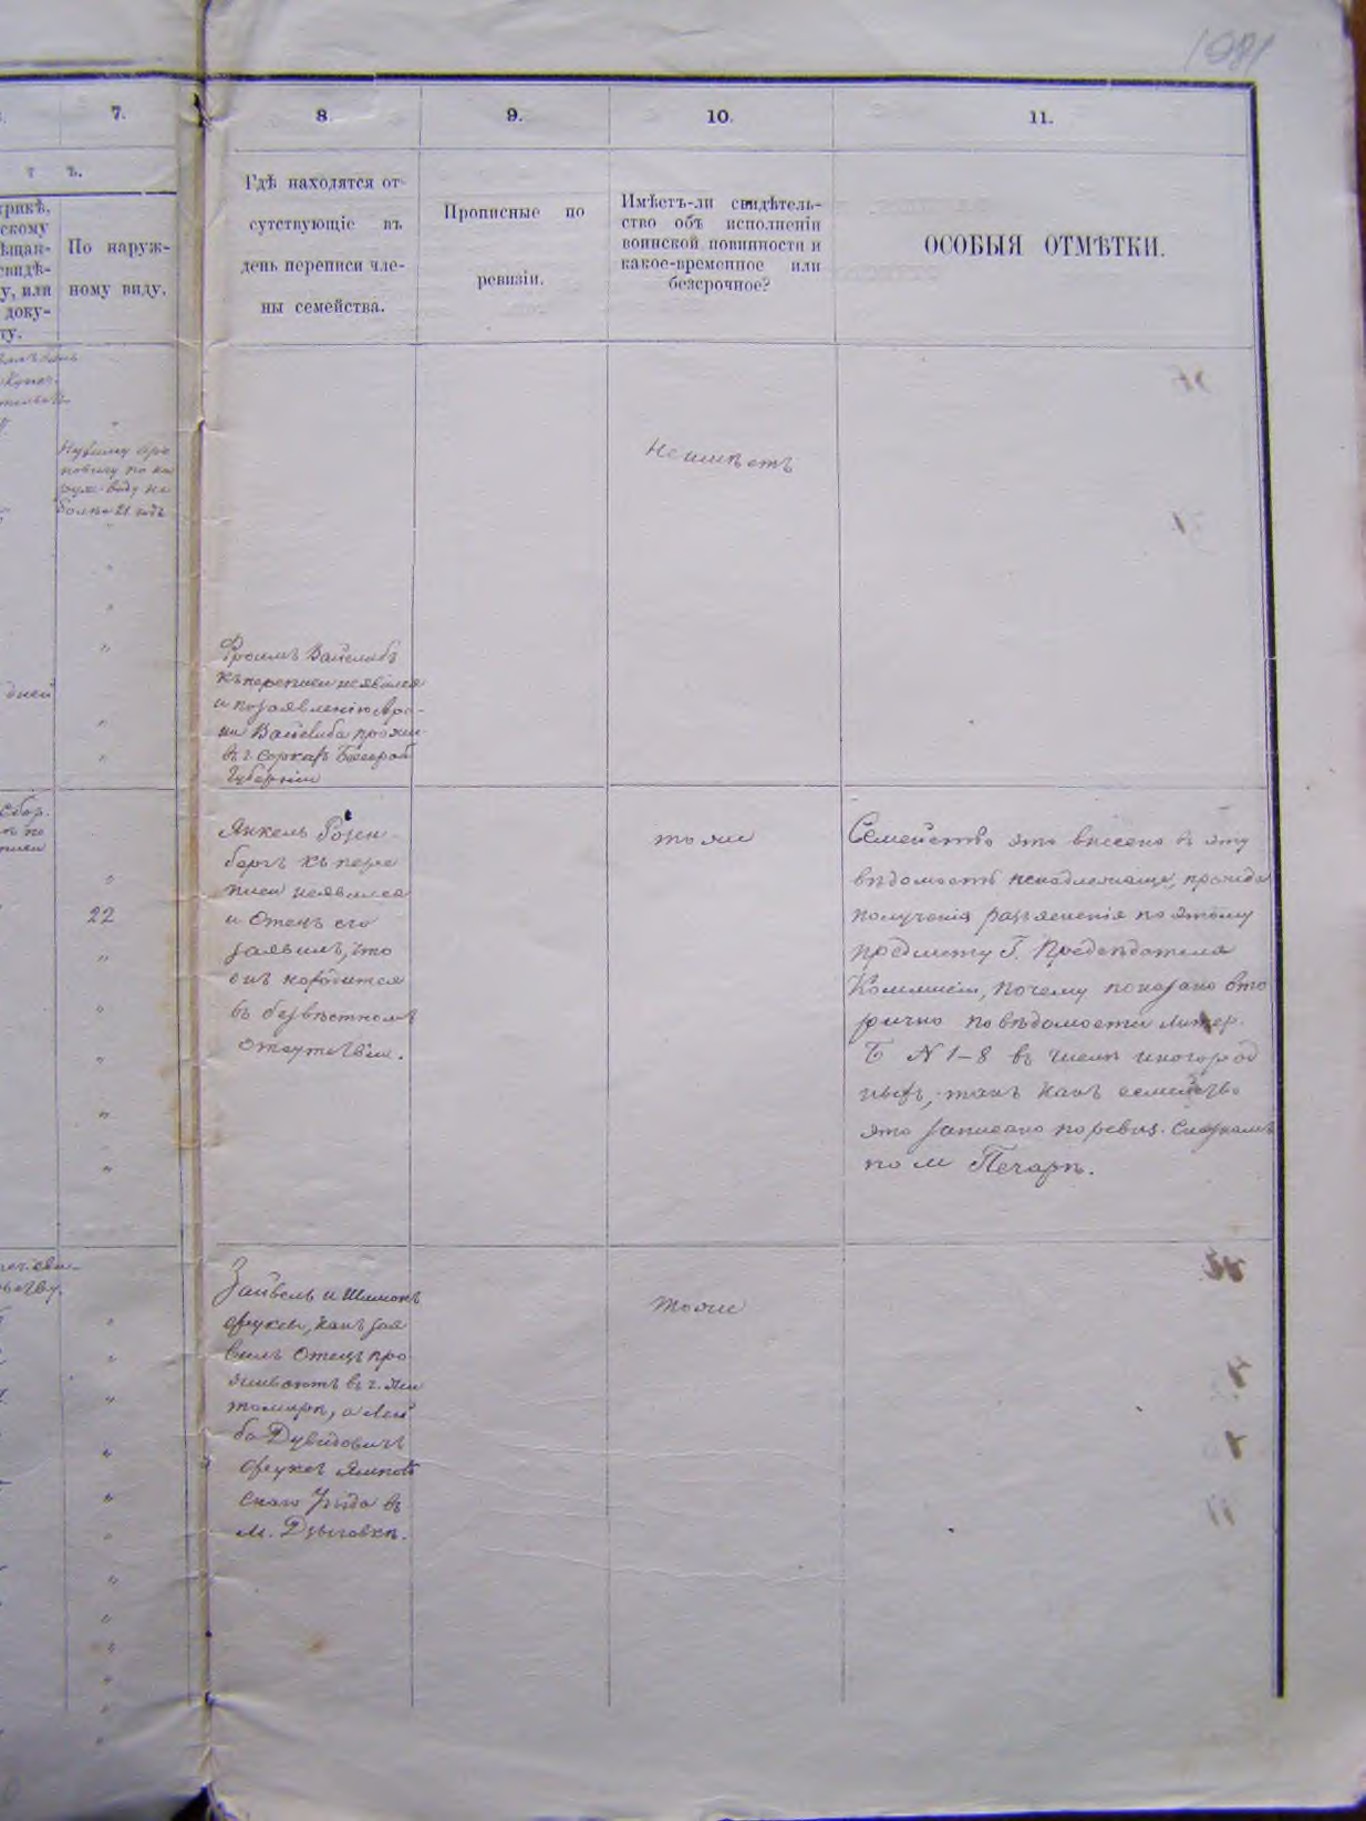 1981
7.
8.
9.
10.
11.
т ъ.
трикѣ,
скому
ѣщан-
свидѣ-
у, или
доку-
ту.
По наруж-
ному виду.
Гдѣ находятся от-
сутствующіе въ
день переписи чле-
ны семейства.
Прописные по
ревизіи.
Имѣетъ-ли свидѣтель-
ство объ исполненіи
воинской повинности и
какое-временное или
безсрочное?
ОСОБЫЯ ОТМѢТКИ.
по на
руж. виду не
болѣе 21 года
дней
22
Неимѣетъ
Фроимъ Вайслибъ
къ переписи неявился
и по заявленію Аро-
на Вайслиба прожи-
въ г. Сорокахъ Бессараб
Губерніи
Янкель Розен-
бергъ къ пере
писи неявился
и Отецъ его
заявилъ, что
онъ находится
въ безвѣстномъ
отсутствіи.
тоже
Семейство это внесено въ эту
вѣдомость ненадлежаще, прежде
полученія разъясненія по этому
предмету Г. Предсѣдателя
Коммисіи, почему показано вто
рично по вѣдомости Литер.
Б N 1-8 въ числѣ иногород
ныхъ, такъ какъ семейство
это записано по ревиз. сказкамъ
по м Печарѣ.
Зайвель и Шимонъ
какъ зая
вилъ Отецъ про
живаютъ въ г. Жи
томирѣ, а Лей
ба Дувидовичъ
Ямполь
скаго Уѣзда въ
м. Дзыговкѣ.
тоже